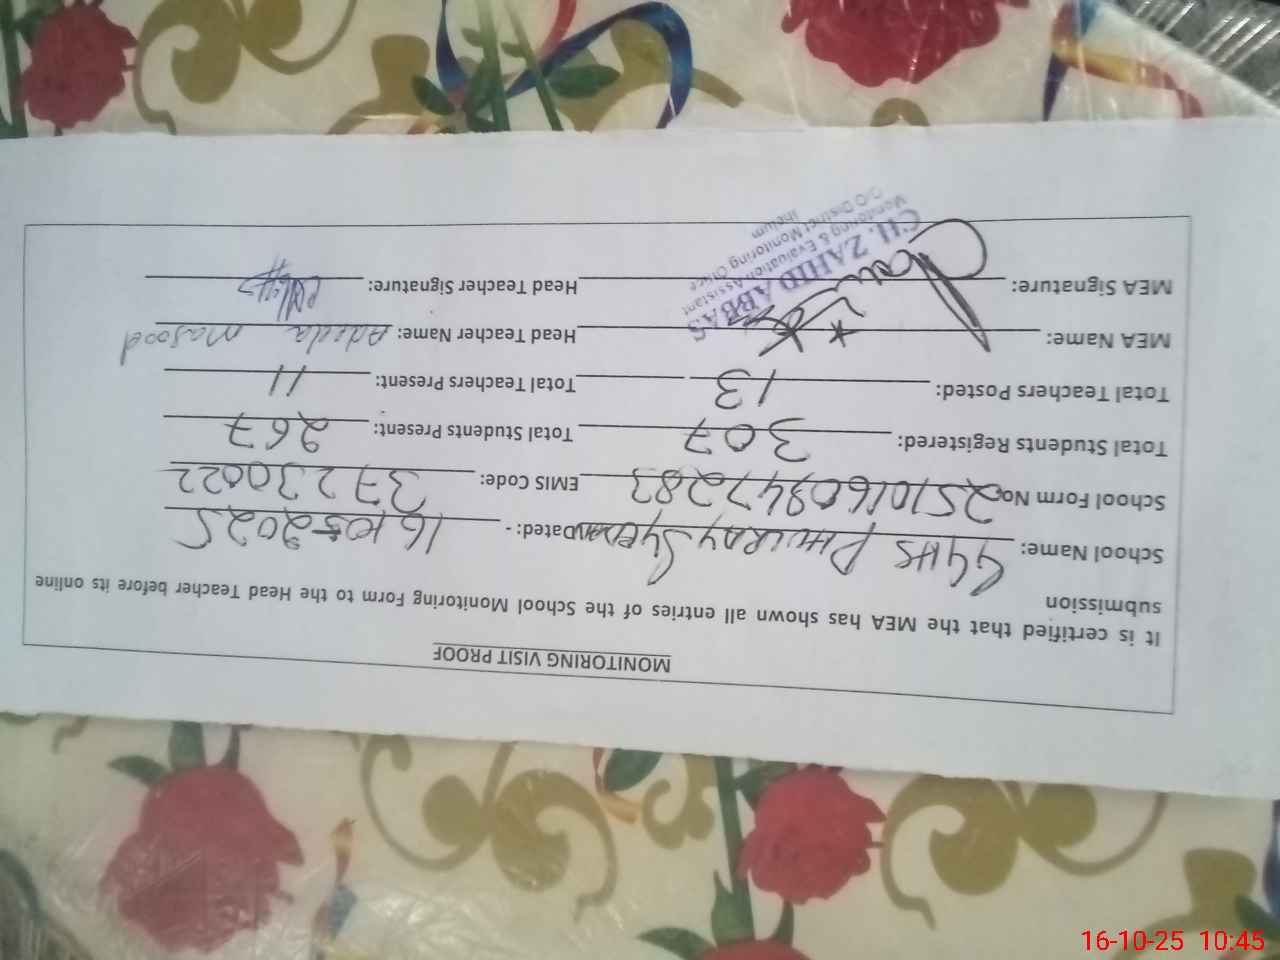 MONITORING VISIT PROOF
It is certified that the MEA has shown all entries of the School Monitoring Form to the Head Teacher before its online
submission
School Name: GGHS PHULRAY SYEDAN Dated: - 16-10-2025
School Form No 251016094728 3 EMIS Code: 37230022
Total Students Registered: 307 Total Students Present: 267
Total Teachers Posted: 13 Total Teachers Present: 11
MEA Name: Head Teacher Name: Adeela masood
MEA Signature: Head Teacher Signature:
CH. ZAHID ABBAS
Monitoring & Evaluation Assistant
O/O District Monitoring Officer
Jhelum
16-10-25 10:45